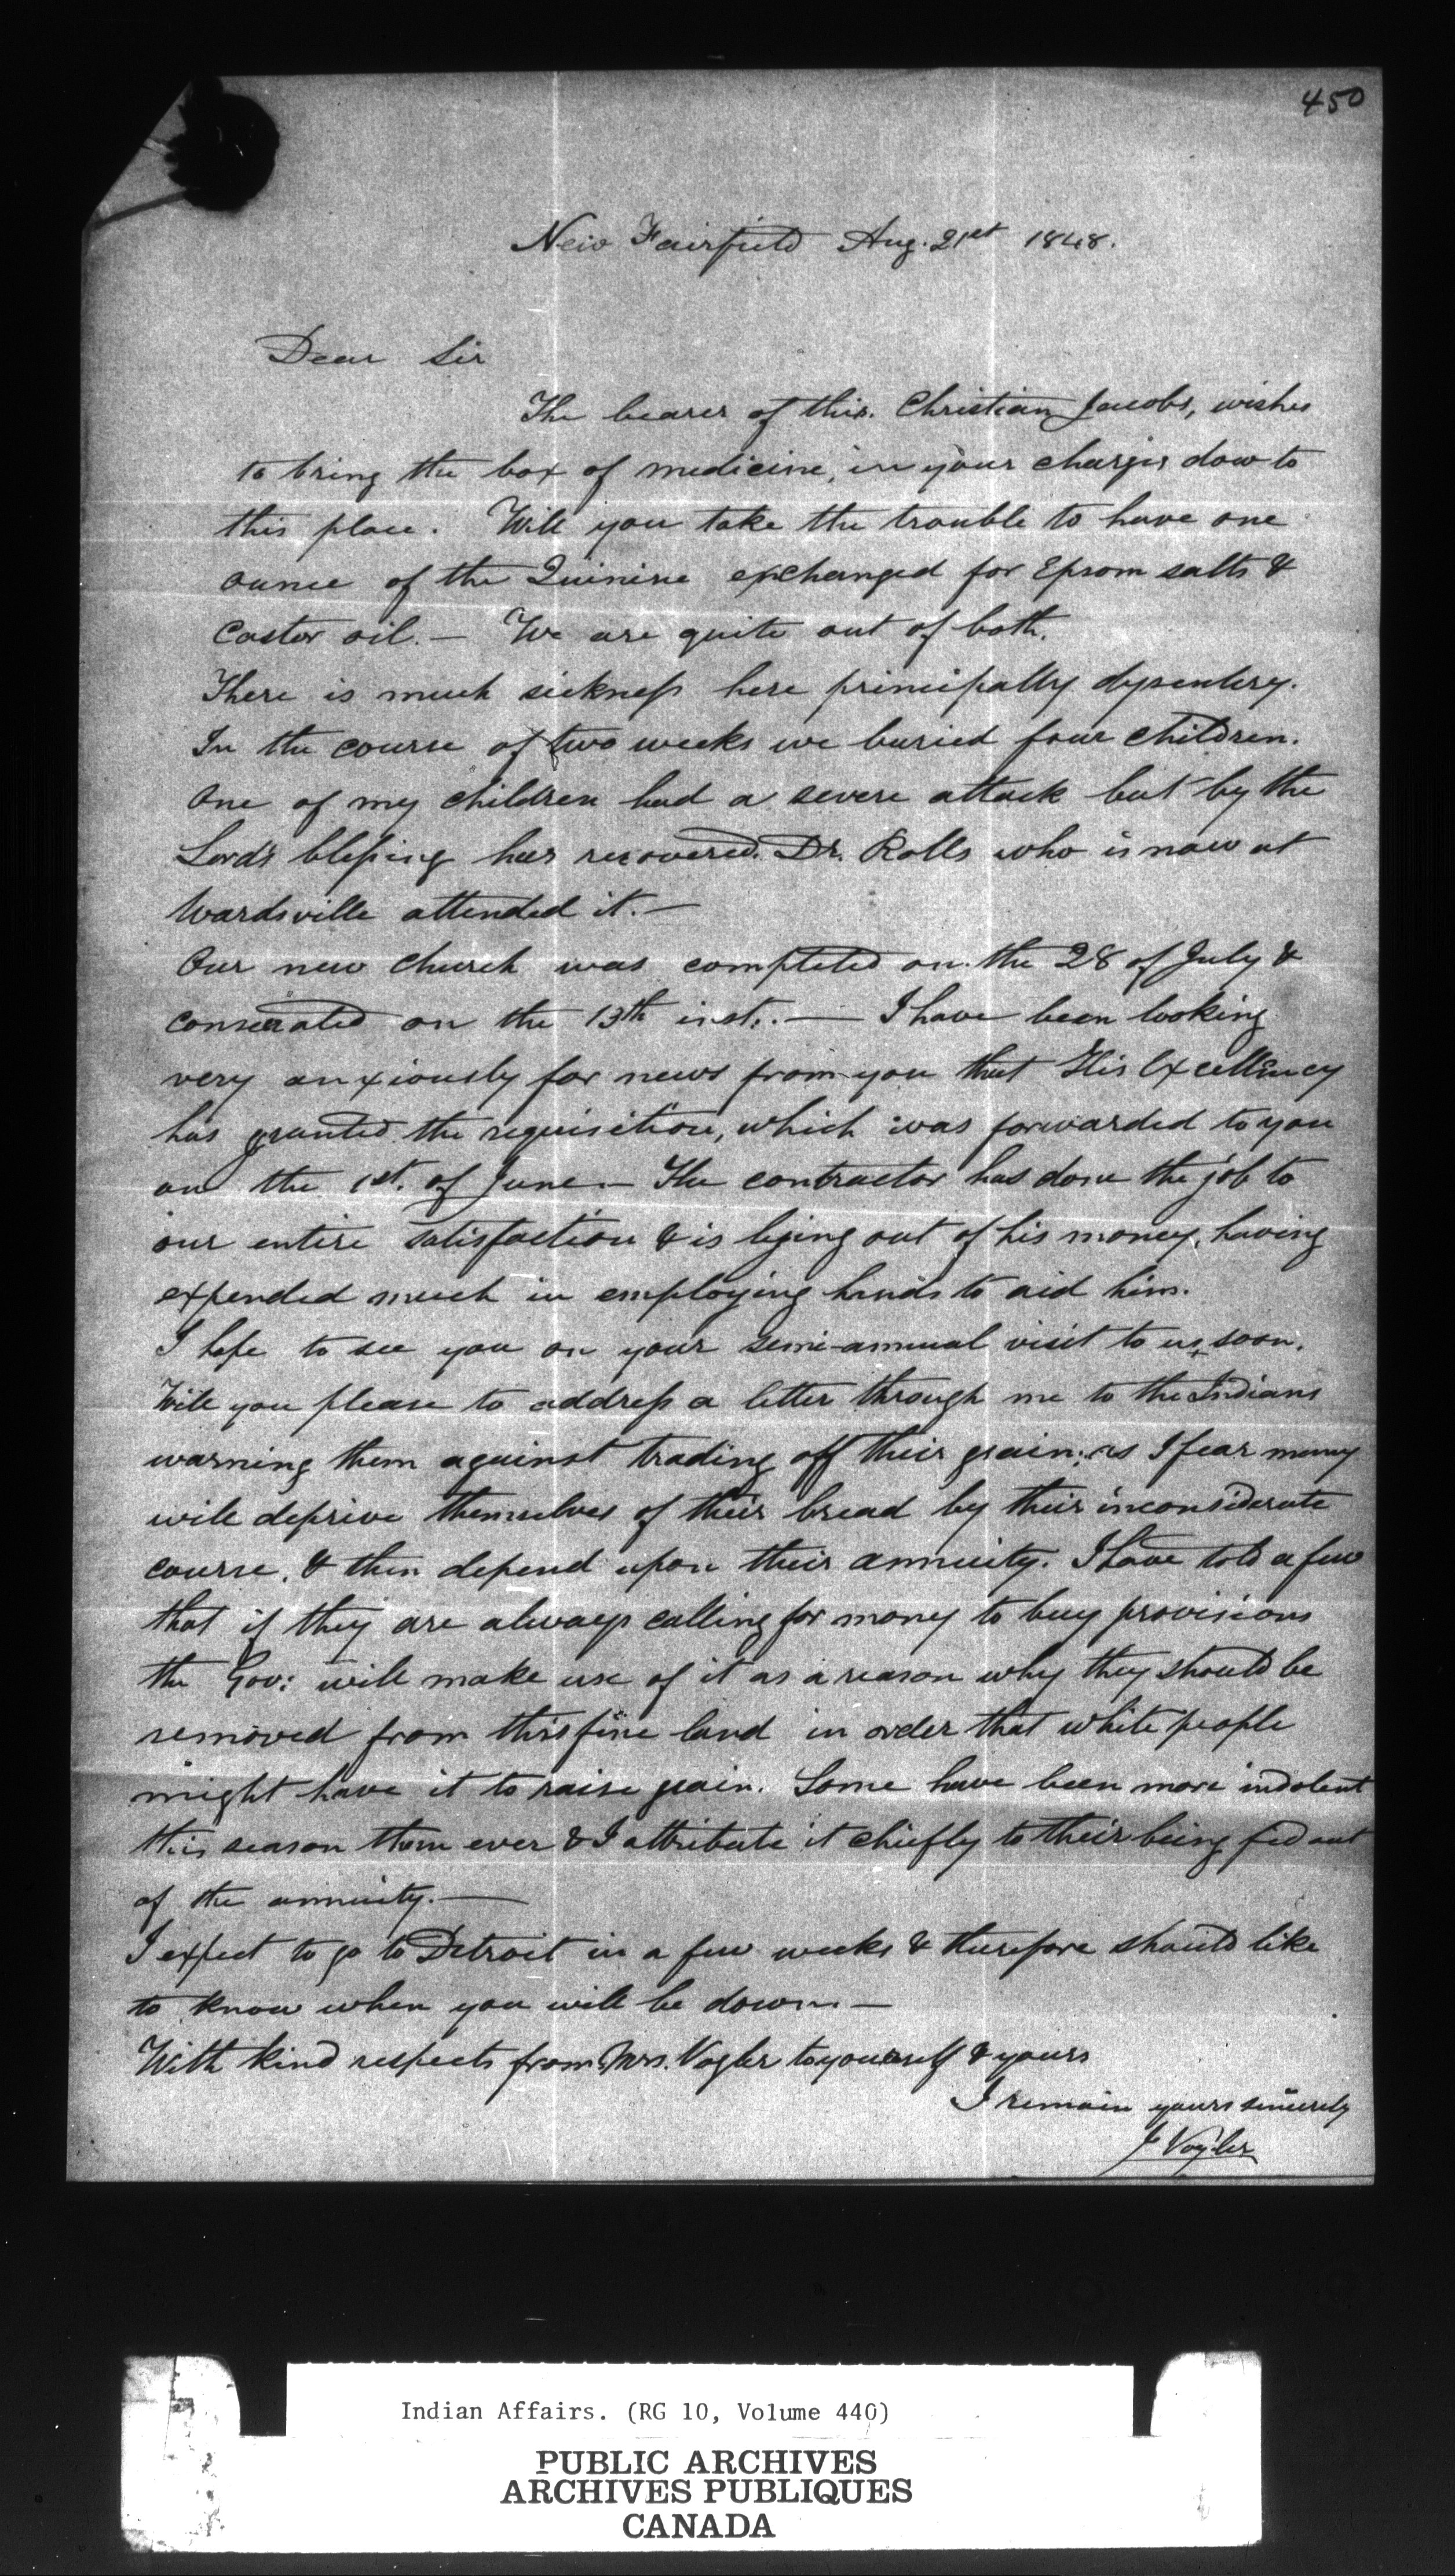 450
New Fairfield Aug. 21st 1848.
Dear Sir
The bearer of this. Christian Jacobs, wishes
to bring the box of medicine, in your charges dow to
this place. Will you take the trouble to have one
ounce of the Quinine exchanged for Epsom salts &
Castor oil. — We are quite out of both.
There is much sickness here principally dysentery.
In the course of two weeks we buried four children.
One of my children had a severe attack but by the
Lord's blessing has recovered. Dr. Rolls who is now at
Wardsville attended it. —
Our new church was completed on the 28 of July &
consecrated on the 13th inst. — I have been looking
very anxiously for news from you that His Excellency
has granted the requisition, which was forwarded to you
on the 1st. of June — The contractor has done the job to
our entire satisfaction & is lying out of his money, having
expended much in employing hands to aid him.
I hope to see you on your semi-annual visit to us soon.
Will you please to address a letter through me to the Indians
warning them against trading off their grain; as I fear many
will deprive themselves of their bread by their inconsiderate
course, & then depend upon their annuity. I have told a few
that if they are always calling for money to buy provisions
the Gov: will make use of it as a reason why they should be
removed from this fine land in order that white people
might have it to raise grain. Some have been more indolent
this season than ever & I attribute it chiefly to their being fed out
of the annuity. —
I expect to go to Detroit in a few weeks & therefore should like
to know when you will be down. —
With kind respects from Mrs. Vogler to yourself & yours
I remain yours sincerely
J Vogler
Indian Affairs. (RG 10, Volume 440)
PUBLIC ARCHIVES
ARCHIVES PUBLIQUES
CANADA